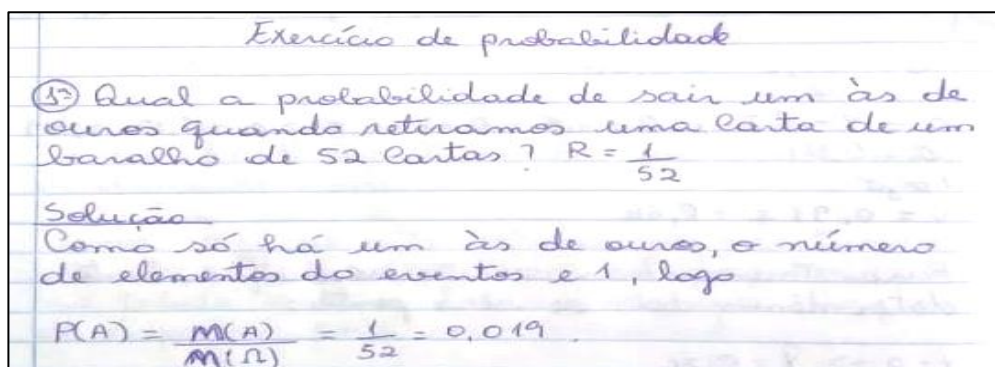 Exercício de probabilidade
1º) Qual a probabilidade de sair um às de
ouros quando retiramos uma carta de um
baralho de 52 cartas? R = 1/52
Solução
Como só há um às de ouros, o número
de elementos do eventos e 1, logo
P(A) = n(A)/n(Ω) = 1/52 = 0,019.